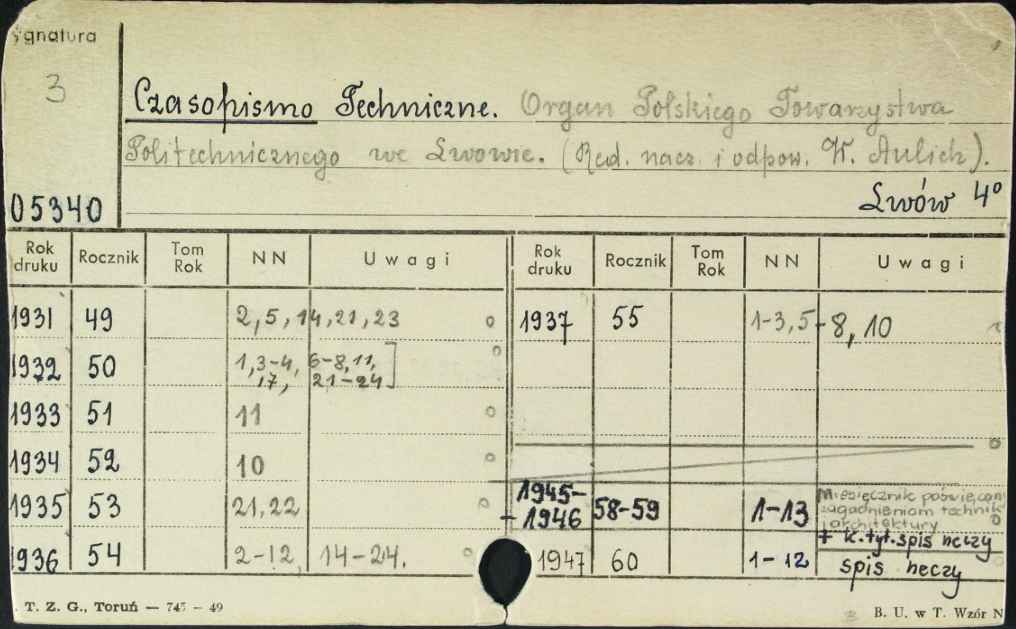 Sygnatura
3
05340
Czasopismo Techniczne. Organ Polskiego Towarzystwa
Politechnicznego we Lwowie. (Red. nacz. i odpow. W. Aulich).
Lwów 4°
Rok druku Rocznik Tom Rok NN Uwagi
1931 49 2, 5, 14, 21, 23
1932 50 1, 3-4, 6-8, 11,
17, 21-24
1933 51 11
1934 52 10
1935 53 21, 22
1936 54 2-12, 14-24.
Rok druku Rocznik Tom Rok NN Uwagi
1937 55 1-3, 5-8, 10
1945-
-1946 58-59 1-13 Miesięcznik poświęcony
zagadnieniom technik
i architektury
+ k. tyt. spis rzeczy
1947 60 1-12 spis rzeczy
. T. Z. G., Toruń — 745 — 49
B. U. w T. Wzór N